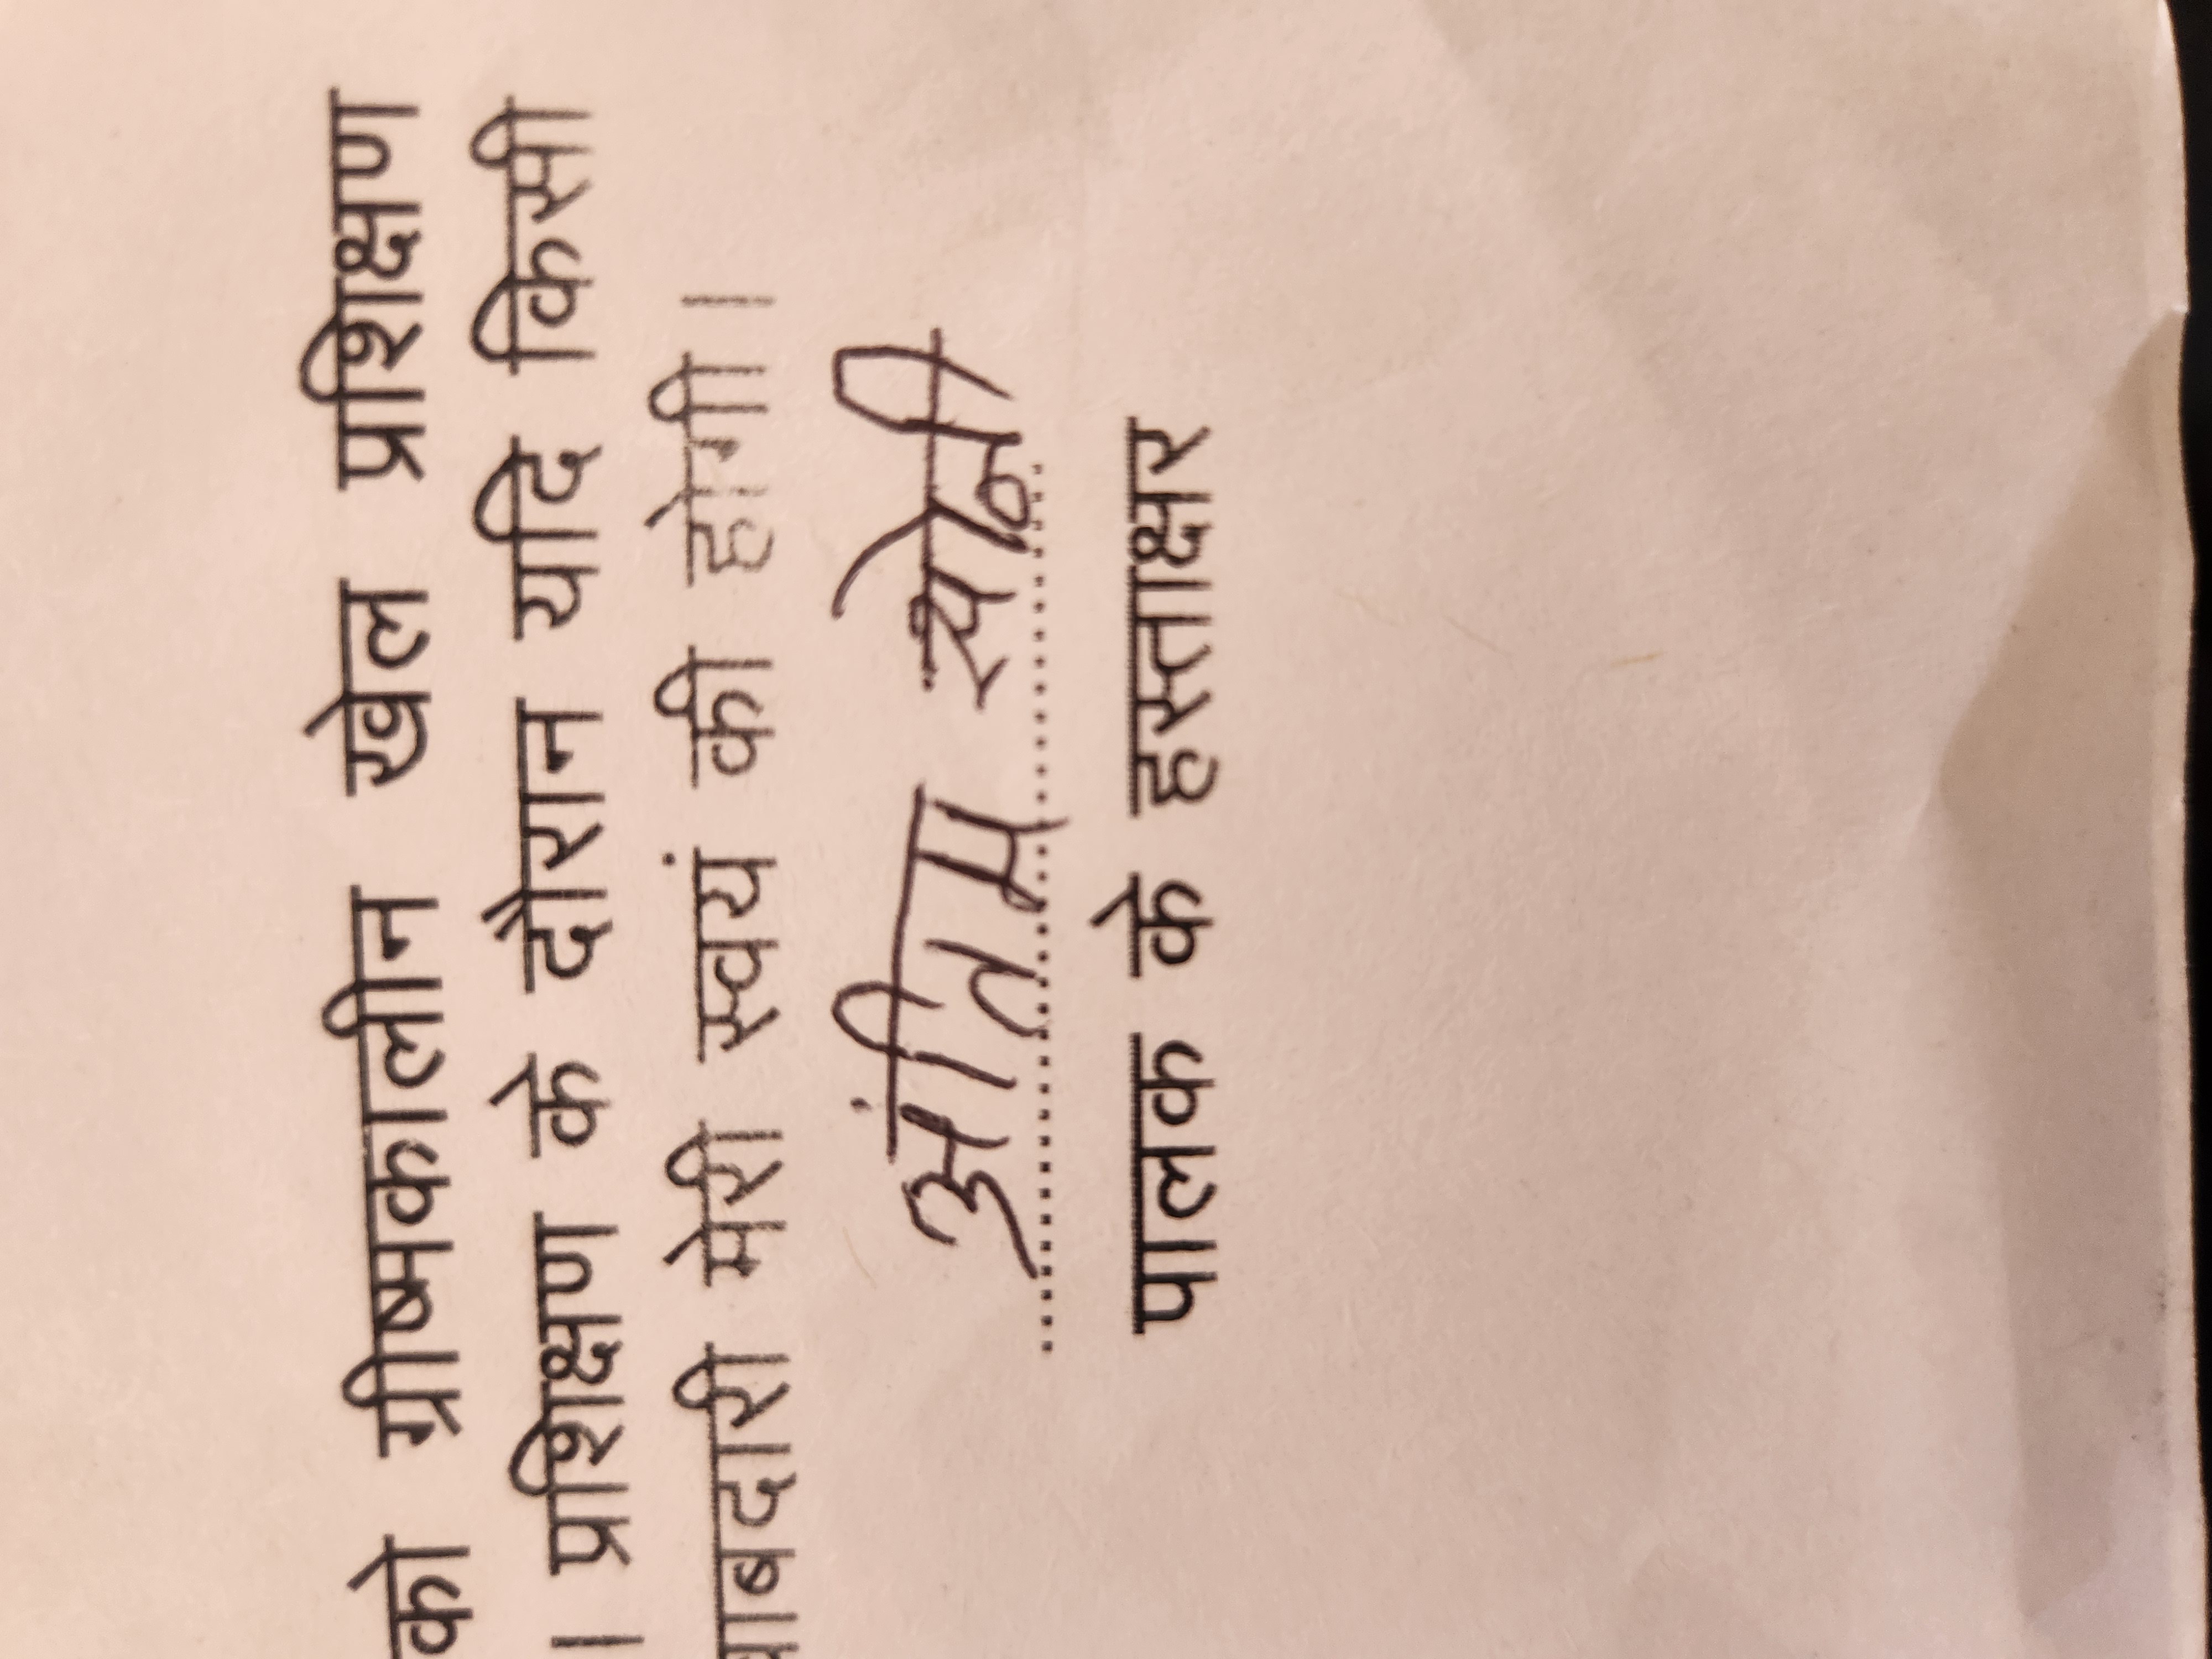 को ग्रीष्मकालीन खेल प्रशिक्षण
। प्रशिक्षण के दौरान यदि किसी
बदारी मेरी स्वयं की होगी।
अंतिम सोनी
पालक के हस्ताक्षर